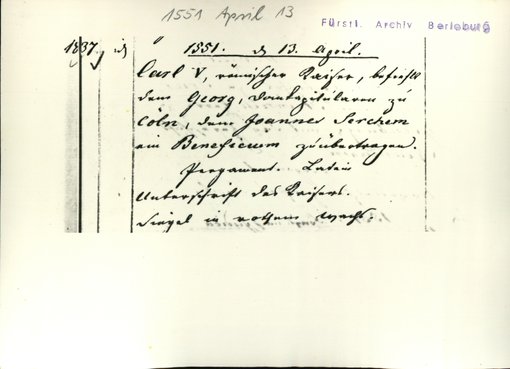 1551 April 13
Fürstl. Archiv Berleburg
1837.
1551. d 13. April.
Carl V, römischer Kaiser, befiehlt
dem Georg, Domkapitularen zu
Cöln, dem Joannes Serchem
ein Beneficium zu übertragen.
Pergament. Latein
Unterschrift des Kaisers.
Siegel in rothem Wachs.